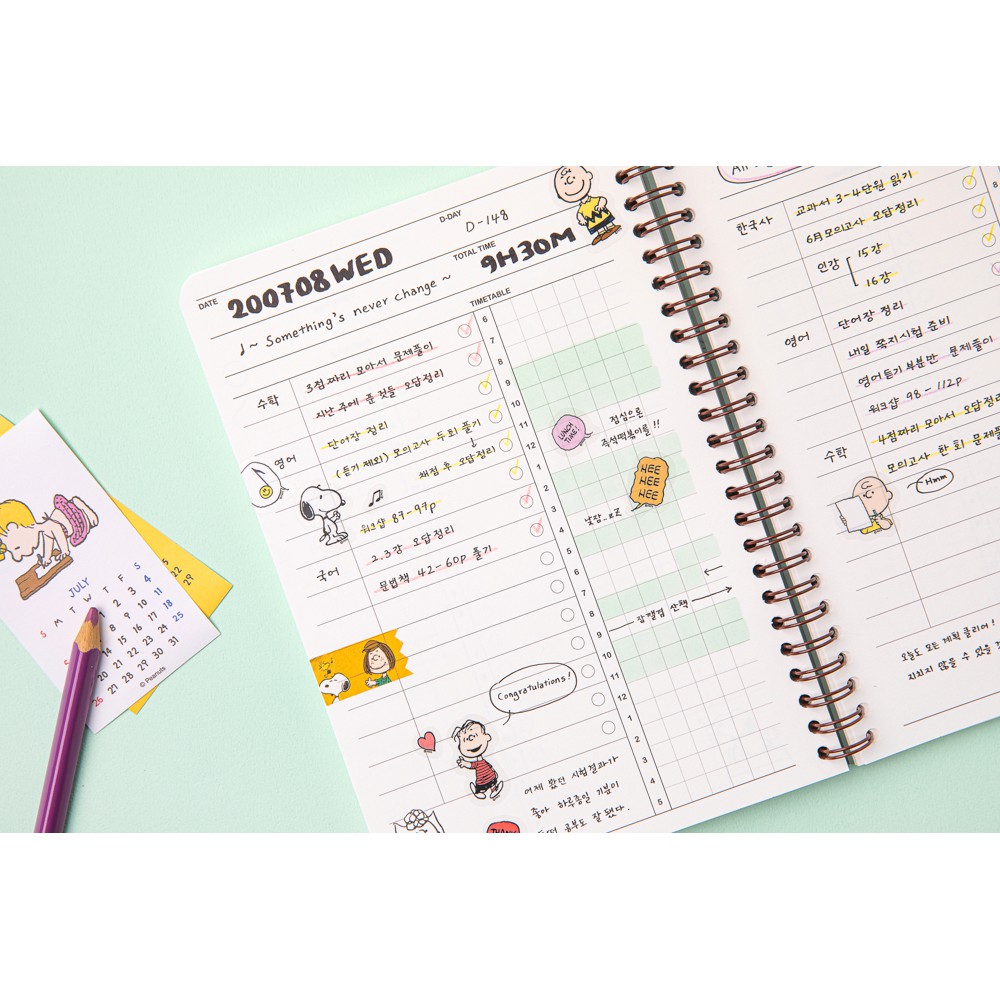 DATE
200708 WED
D-DAY
D-148
TOTAL TIME
9H30M
♩~ Something's never change ~
TIMETABLE
수학
3점짜리 모아서 문제풀이
지난 주에 푼 것들 오답정리
영어
단어장 정리
(듣기 제외) 모의고사 두회 풀기
↓
채점 후 오답정리
워크샵 87-97p
국어
2.3강 오답정리
문법책 42-60p 풀기
Congratulations!
어제 봤던 시험결과가
좋아 하루종일 기분이
공부도 잘 됐다.
6
7
8
9
10
11
12
1
2
3
4
5
6
7
8
9
10
11
12
1
2
3
4
5
LUNCH TIME!
점심으론
즉석떡볶이를!!
HEE
HEE
HEE
낮잠_zZ
산책
한국사
교과서 3-4단원 읽기
6月 모의고사 오답정리
인강
15강
16강
영어
단어장 정리
내일 쪽지시험 준비
영어듣기 부분만 문제풀이
워크샵 98-112p
수학
4점짜리 모아서 오답
모의고사 한 회
Hmm
오늘도 모든 계획 클리어!
지치지 않을 수 있을
8
JULY
S M T W T F S
1 2 3 4
8 9 10 11
14 15 16 17 18
21 22 23 24 25
26 28 29 30 31
© Peanuts
22
29